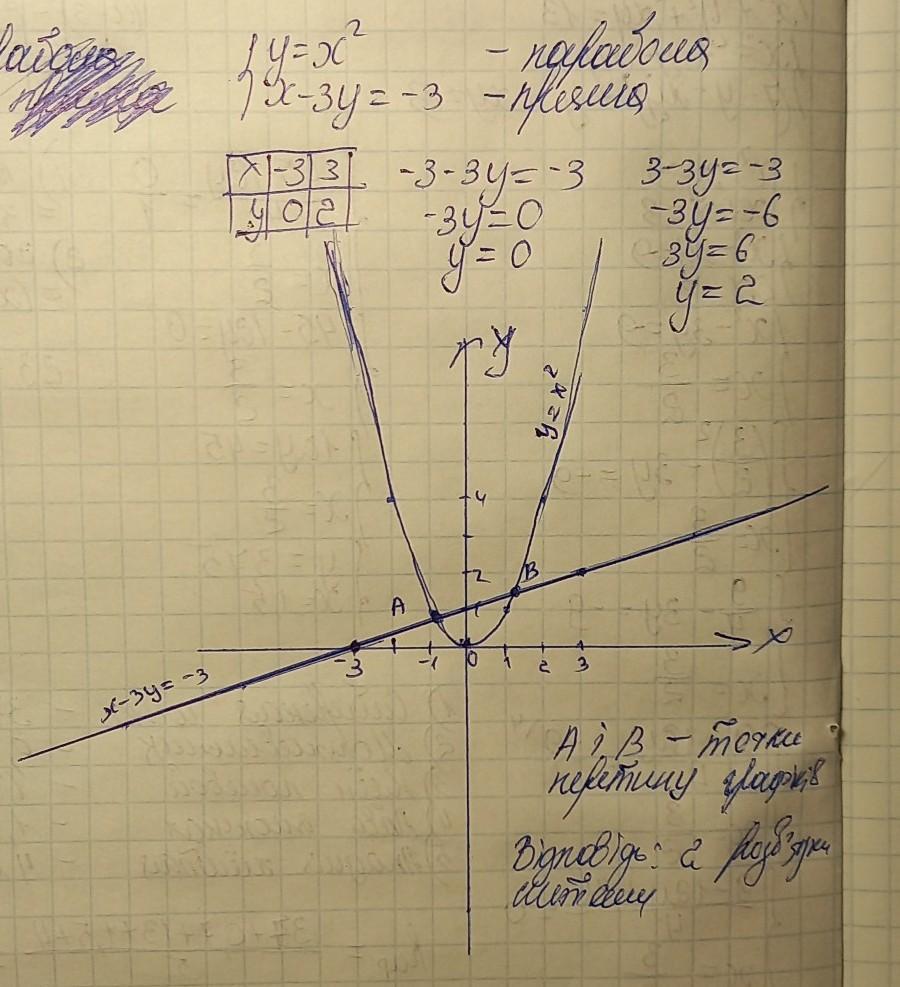 y=x² - парабола
x-3y= -3 - пряма
x -3 3
y 0 2
-3-3y= -3
-3y=0
y=0
3-3y=-3
-3y=-6
3y=6
y=2
y
y=x²
4
2
A
B
1
-3 -1 0 1 2 3
x
x-3y= -3
A і B - точки
перетину графіків
Відповідь: 2 розв'язки
системи